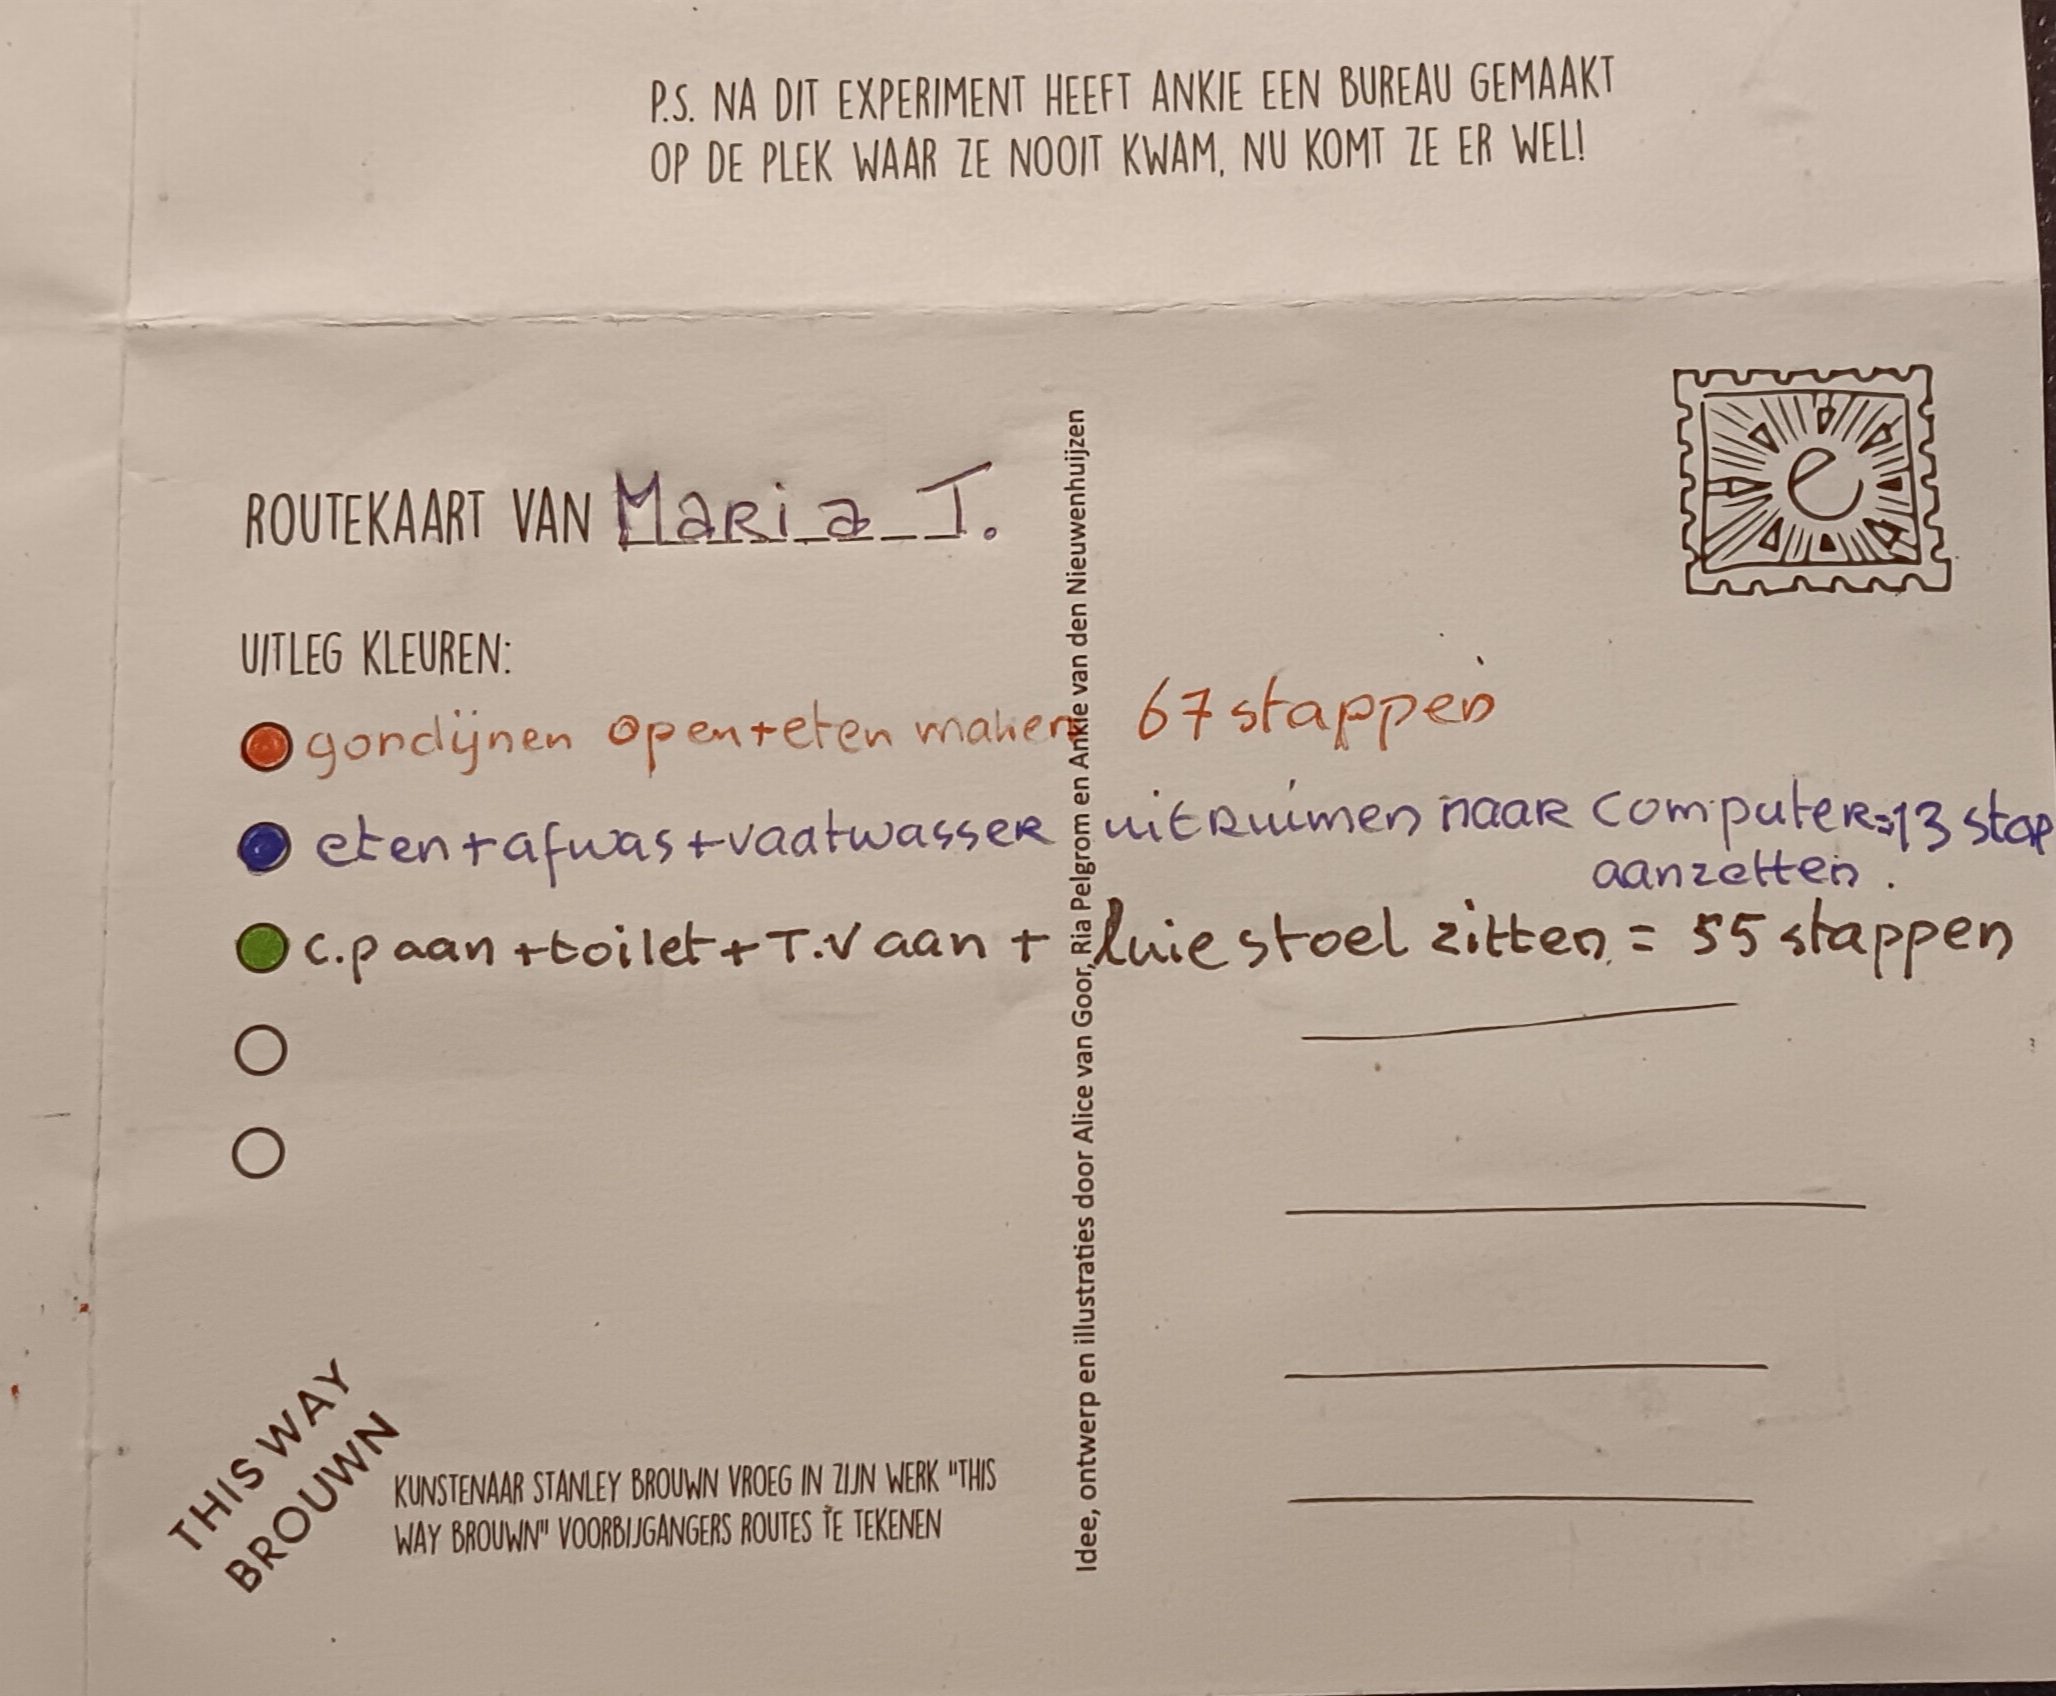 P.S. NA DIT EXPERIMENT HEEFT ANKIE EEN BUREAU GEMAAKT
OP DE PLEK WAAR ZE NOOIT KWAM, NU KOMT ZE ER WEL!
e
ROUTEKAART VAN MaRia T.
UITLEG KLEUREN:
gordijnen open+eten maken 67 stappen
eten+afwas+vaatwasseR uitRuimen naaR computeR=13 stap
aanzetten.
c.p aan +toilet+T.V aan + luie stoel zitten = 55 stappen
Idee, ontwerp en illustraties door Alice van Goor, Ria Pelgrom en Ankie van den Nieuwenhuijzen
THIS WAY
BROUWN
KUNSTENAAR STANLEY BROUWN VROEG IN ZIJN WERK "THIS
WAY BROUWN" VOORBIJGANGERS ROUTES TE TEKENEN